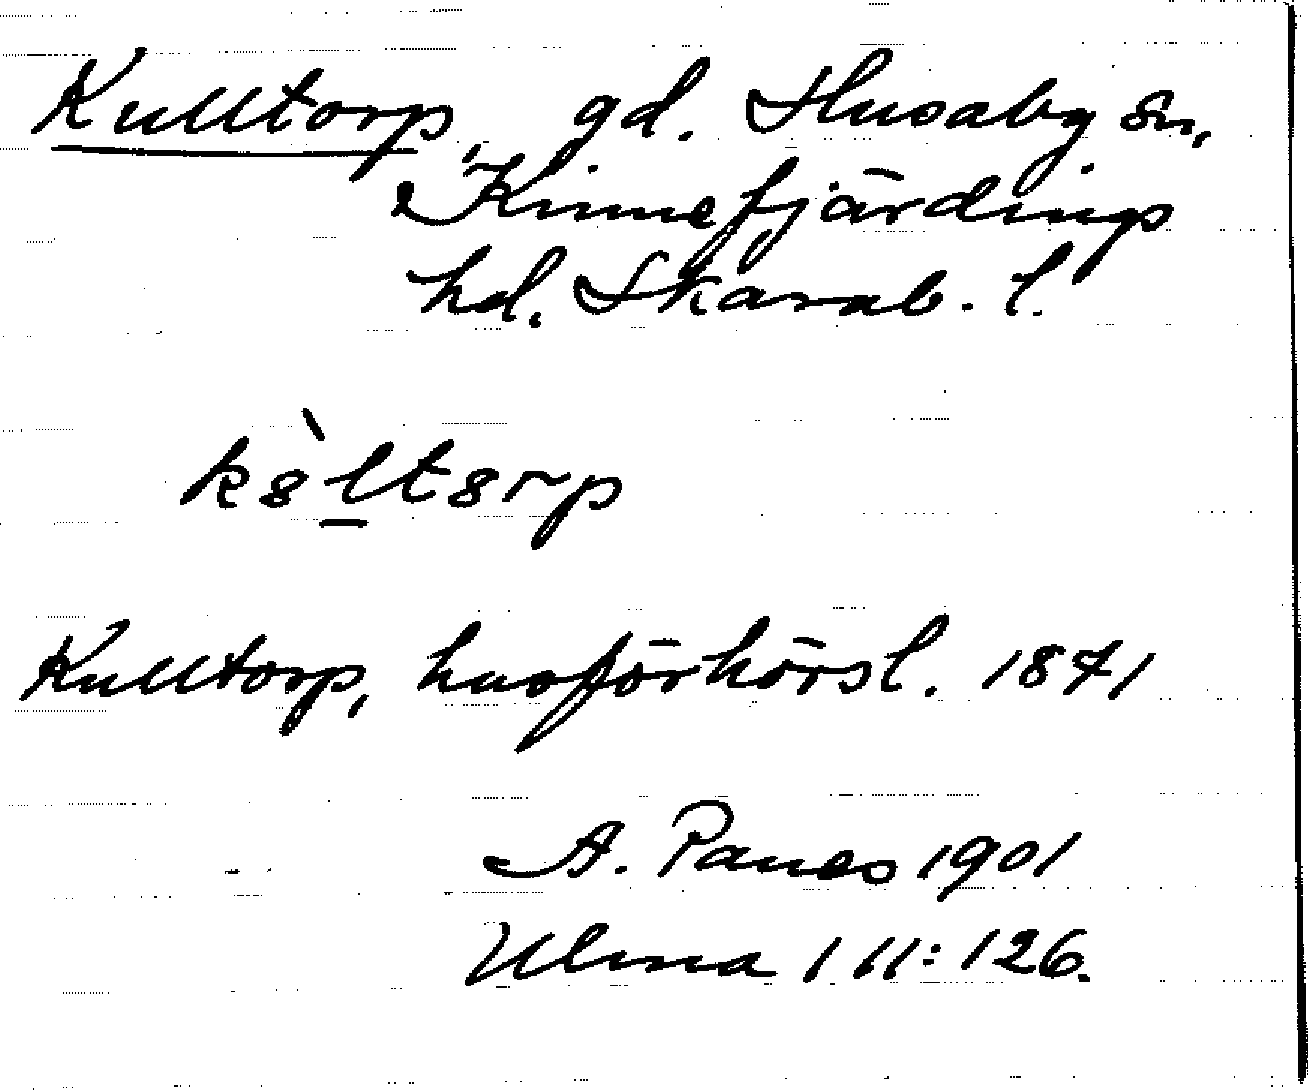 Kulltorp, gd. Husaby sn,
Kinnefjärdings
hd. Skarab. l.
kòltorp
Kulltorp, husförhörsl. 1871
A. Panes 1901
Ulma 111:126.